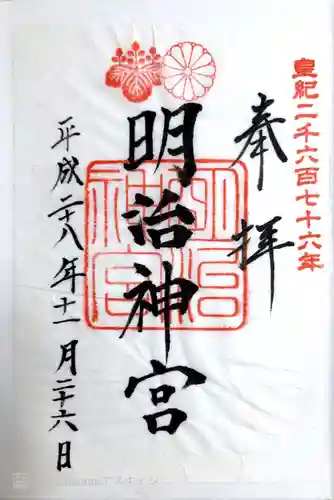 皇紀二千六百七十六年
奉拝
明治神宮
明治神宮
平成二十八年十一月二十六日